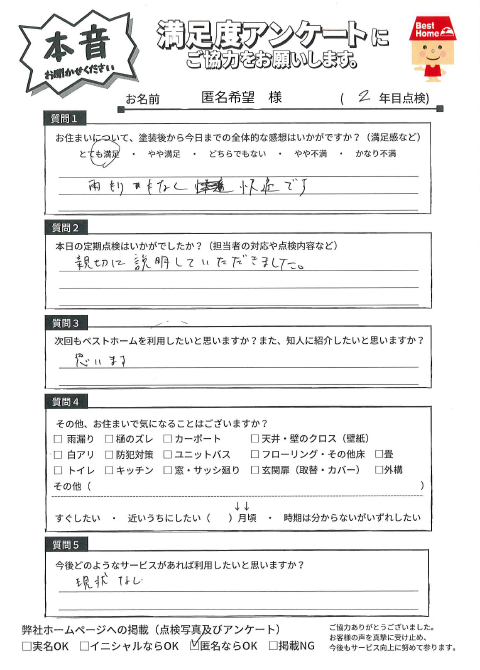 本音
お聞かせください
満足度アンケートに
ご協力をお願いします。
Best
Home
お名前 匿名希望 様 ( 2 年目点検)
質問1
お住まいについて、塗装後から今日までの全体的な感想はいかがですか?(満足感など)
とても満足 ・ やや満足 ・ どちらでもない ・ やや不満 ・ かなり不満
雨もりもなく 快適です
質問2
本日の定期点検はいかがでしたか?(担当者の対応や点検内容など)
親切に説明していただきました。
質問3
次回もベストホームを利用したいと思いますか?また、知人に紹介したいと思いますか?
思います
質問4
その他、お住まいで気になることはございますか?
☐ 雨漏り ☐ 樋のズレ ☐ カーポート ☐ 天井・壁のクロス(壁紙)
☐ 白アリ ☐ 防犯対策 ☐ ユニットバス ☐ フローリング・その他床 ☐ 畳
☐ トイレ ☐ キッチン ☐ 窓・サッシ廻り ☐ 玄関扉(取替・カバー) ☐ 外構
その他( )
↓↓
すぐしたい ・ 近いうちにしたい( )月頃 ・ 時期は分からないがいずれしたい
質問5
今後どのようなサービスがあれば利用したいと思いますか?
現状なし
弊社ホームページへの掲載(点検写真及びアンケート)
☐実名OK ☐イニシャルならOK ☑匿名ならOK ☐掲載NG
ご協力ありがとうございました。
お客様の声を真摯に受け止め、
今後もサービス向上に努めて参ります。